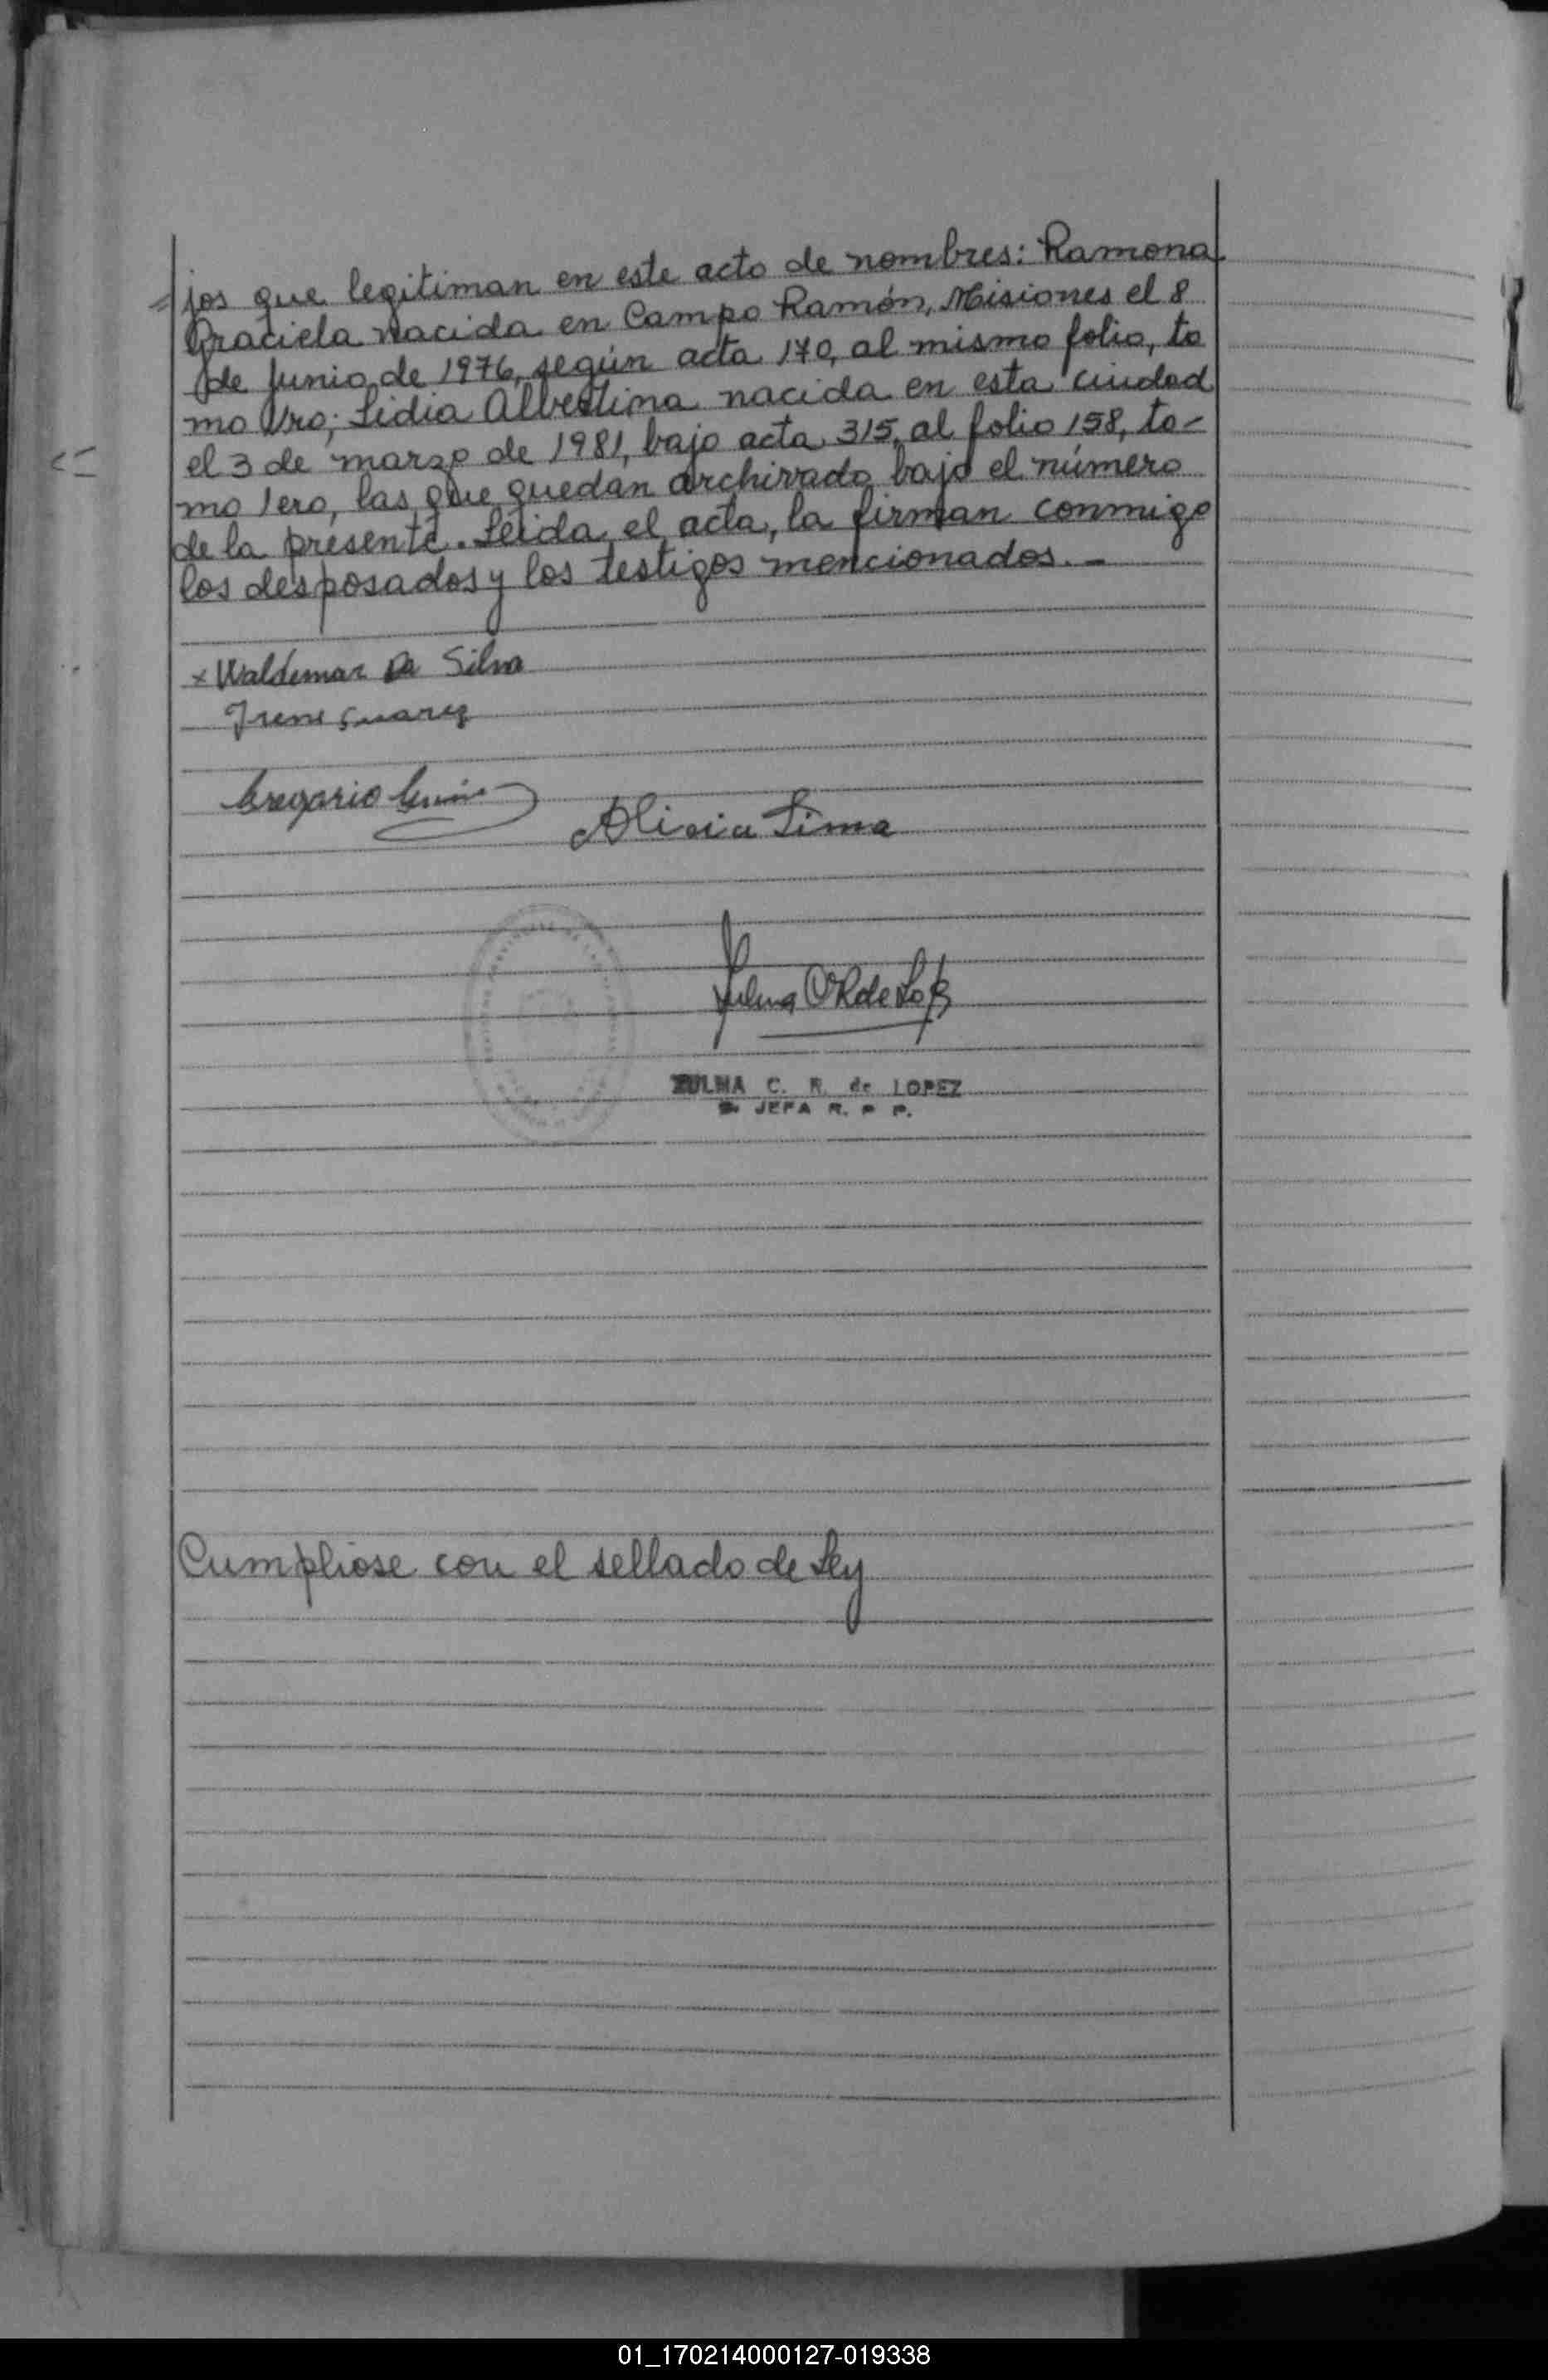 =jos que legitiman en este acto de nombres: Ramona
Graciela nacida en Campo Ramón, Misiones el 8
de Junio de 1976, según acta 170, al mismo folio, to
mo 1ro; Lidia Albertina nacida en esta ciudad
el 3 de marzo de 1981, bajo acta 315, al folio 158, to-
mo 1ero, las que quedan archivado bajo el número
de la presente. Leida el acta, la firman conmigo
los desposados y los testigos mencionados. -
x Waldemar Da Silva
Irene Suarez
Gregorio
Alicia Lima
Zulma C R de
ZULMA C. R. de LOPEZ
JEFA R. P P.
Cumpliose con el sellado de Ley
01_170214000127-019338